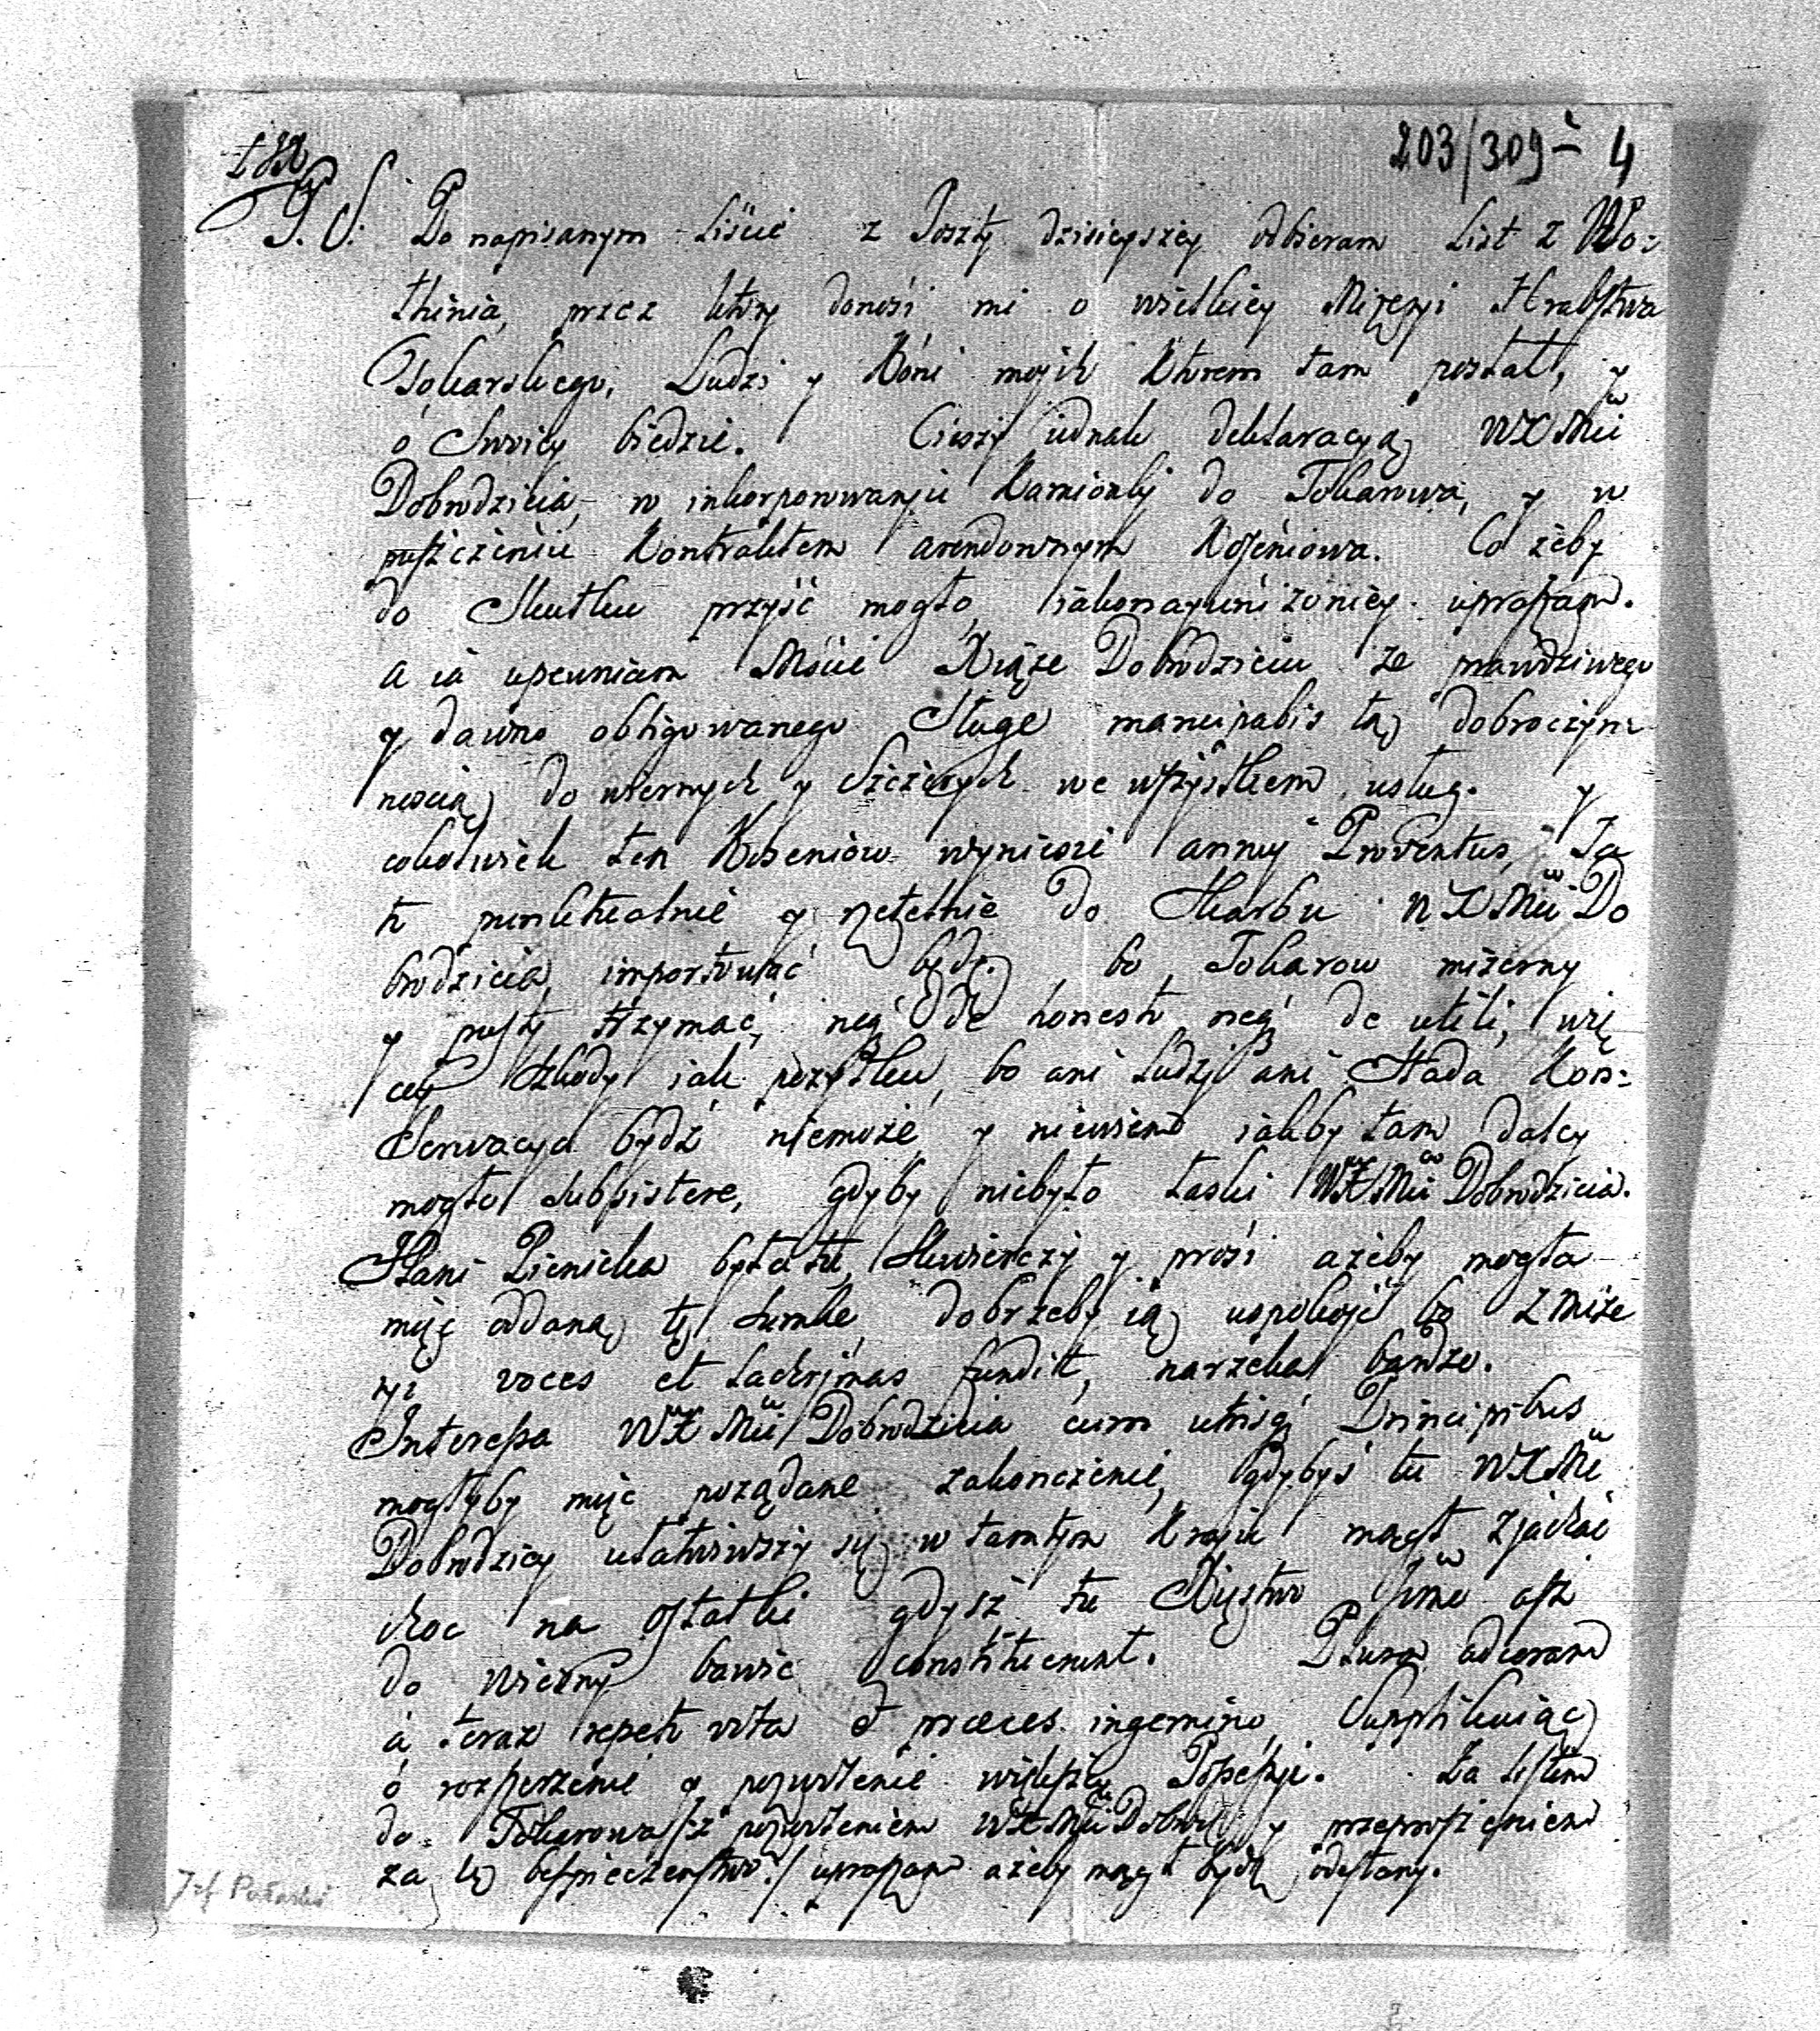 203/309 - 4
P. S. Po napisanym Liscie z Poszty dzisieyszey odbieram List z Wo-
łhinia, przez ktory donosi mi o wielkiey Mizeryi Hrabstwa
Tokarskiego, Ludzi y Koni moich ktorem tam posłał, y
o swoiey biedzie. Cieszy iednak deklaracyą WXMci
Dobrodzieia, w inkorporowaniu Kamionki do Tokarowa, y w
puszczeniu Kontraktem arendownym Koseniowa. Co żeby
do Skutku przyiść mogło, iako nayuniżeniey upraszam.
a ia upewniam Mości Xiąże Dobrodzieiu że prawdziwego
y dawno obligowanego Sługe mancipabis tą dobroczyn
nością do wiernych y Szczerych we wszystkiem usług. y
cokolwiek ten Koseniow wyniesie annui Proventus, Ja
to punktualnie y rzetelnie do Skarbu WXMci Do
brodzieia importować będę. bo Tokarow mizerny
y pusty trzymać, neq de honesto neq de utili, wię
cey Szkody iak pożytku, bo ani Ludzi ani Stada Kon-
serwacya bydź niemoże y niewiem iakby tam daley
mogło subsistere, gdyby niebyło Łaski WXMci Dobrodzieia.
Pani Pienicka była tu, skwierczy y prosi ażeby mogła
mieć oddaną tę sumke, dobrzeby ią uspokoić bo z mize
ryi voces et lachrymas fundit, narzeka bardzo.
Interessa WXMci Dobrodzieia cum utrisq Principibus
mogłyby mieć pożądane zakonczenie, gdybyś tu WXMć
Dobrodziey ułatwiwszy się w tamtym Kraiu mogł zjachać
choc na ostatki gdysz tu Xięstwo Jmć asz
do wiosny bawić constituerunt. Plura adcoram
a teraz repeto vota et preces ingemino, Supplikuiąc
o rozszerzenie y pozwolenie większey Possessyi. Za Listem
do Tokarowa /:z pozwoleniem WXMci Dobrodz y przeproszeniem
za tę besspieczenstwo:/ upraszam ażeby mogł bydź odesłany.